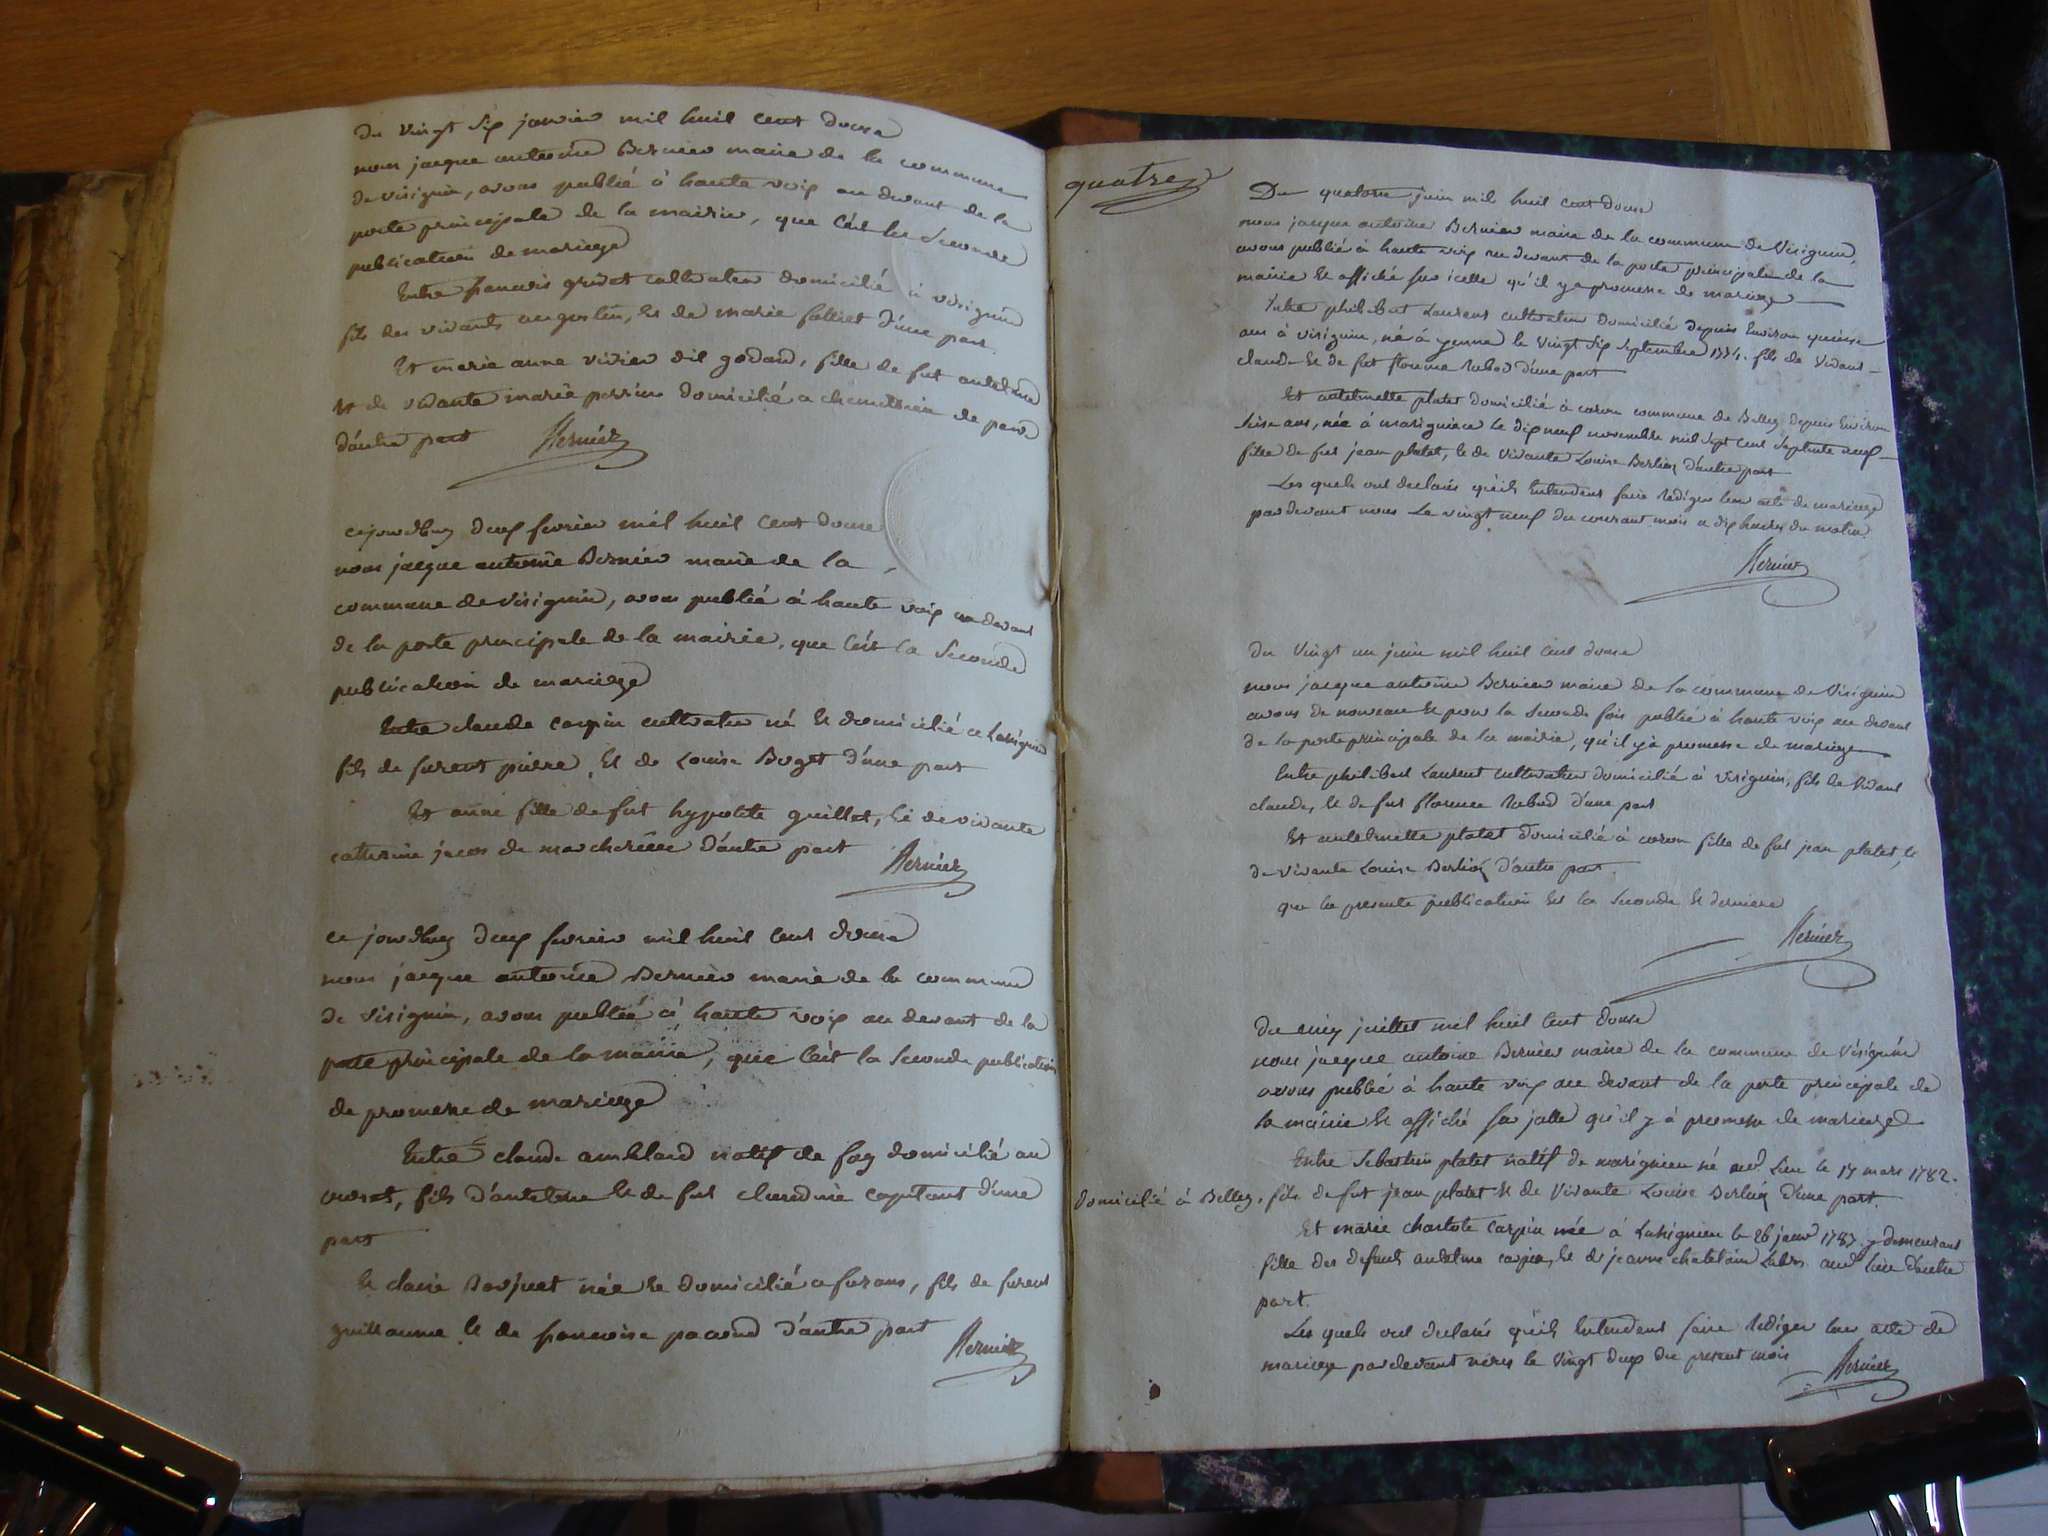 du vingt six janvier mil huit cent douse
nous jacque antoine Bernier maire de la commune
de virignin, avons publié à haute voix au devant de la
porte principale de la mairie, que c'est la seconde
publication de mariage
Entre francois grivet cultivateur domicilié à virignin
fils des vivants augustin, et de marie falliet d'une part.
Et marie anne vivier dit godard, fille de fut antelme
et de vivante marie perrin domicilié a chemillieu de parve
d'autre part Bernier
cejourdhuy deux fevrier mil huit cent douse
nous jacque antoine Bernier maire de la
commune de virignin, avons publié à haute voix au devant
de la porte principale de la mairie, que c'est la seconde
publication de mariage
Entre claude carpin cultivateur né et domicilié a Lassignieu
fils de furent pierre, et de Louise Boget d'une part
Et anne fille de fut hypolite guillet, et de vivante
catherine jacos de d'autre part Bernier
ce jourdhuy deux fevrier mil huit cent douse
nous jacque antoine Bernier maire de la commune
de virignin, avons publié à haute voix au devant de la
porte principale de la mairie, que c'est la seconde publication
de promesse de mariage
Entre claude amblard natif de domicilié au
fils d'antelme et de fut claudine d'une
part
Et claire née et domicilié a furans, fils de furent
guillaume et de francoise pacoud d'autre part Bernier
quatre
Du quatorse juin mil huit cent douse
nous jacque antoine Bernier maire de la commune de Virignin,
avons publié à haute voix au devant de la porte principale de la
mairie et affiché sur icelle qu'il y a promesse de mariage
Entre philibert Laurent cultivateur domicilié depuis Environ quinse
ans à virignin, né à yenne le vingt six septembre 1774. fils de vivant
claude et de fut florence Rubod d'une part
Et antelmette platet domicilié à coron commune de Belley depuis Environ
seise ans, née à marignieu le dix neuf novembre mil sept cent septante neuf
fille de fut jean platet, et de vivante Louise Berliox d'autre part
Les quels ont declarés qu'ils entendent faire rediger leur acte de mariage
pardevant nous Le vingt neuf du courant mois a dix heures du matin
Bernier
du vingt un juin mil huit cent douse
nous jacque antoine Bernier maire de la commune de Virignin
avons de nouveau et pour la seconde fois publié à haute voix au devant
de la porte principale de la mairie, qu'il y a promesse de mariage
Entre philibert Laurent cultivateur domicilié à virignin, fils de vivant
claude, et de fut florence Rubod d'une part
Et antelmette platet domicilié à coron fille de fut jean platet, et
de vivante Louise Berliox d'autre part.
que la presente publication est la seconde et derniere
Bernier
du cinq juillet mil huit cent douse
nous jacque antoine Bernier maire de la commune de virignin
avons publié à haute voix au devant de la porte principale de
la mairie et affiché sur jcelle qu'il y à promesse de mariage
Entre Sebastien platet natif de marignieu né aud. Lieu le 17 mars 1782.
domicilié à Belley, fils de fut jean platet et de vivante Louise Berliox d'une part.
Et marie charlote carpin née à Lassignieu le 26 janvr 1787. y demeurant
fille des defunts antelme carpin, et de jeanne chatelain aud. Lieu d'autre
part.
Les quels ont declarés qu'ils entendent faire rediger leur acte de
mariage pardevant nous le vingt deux du present mois Bernier